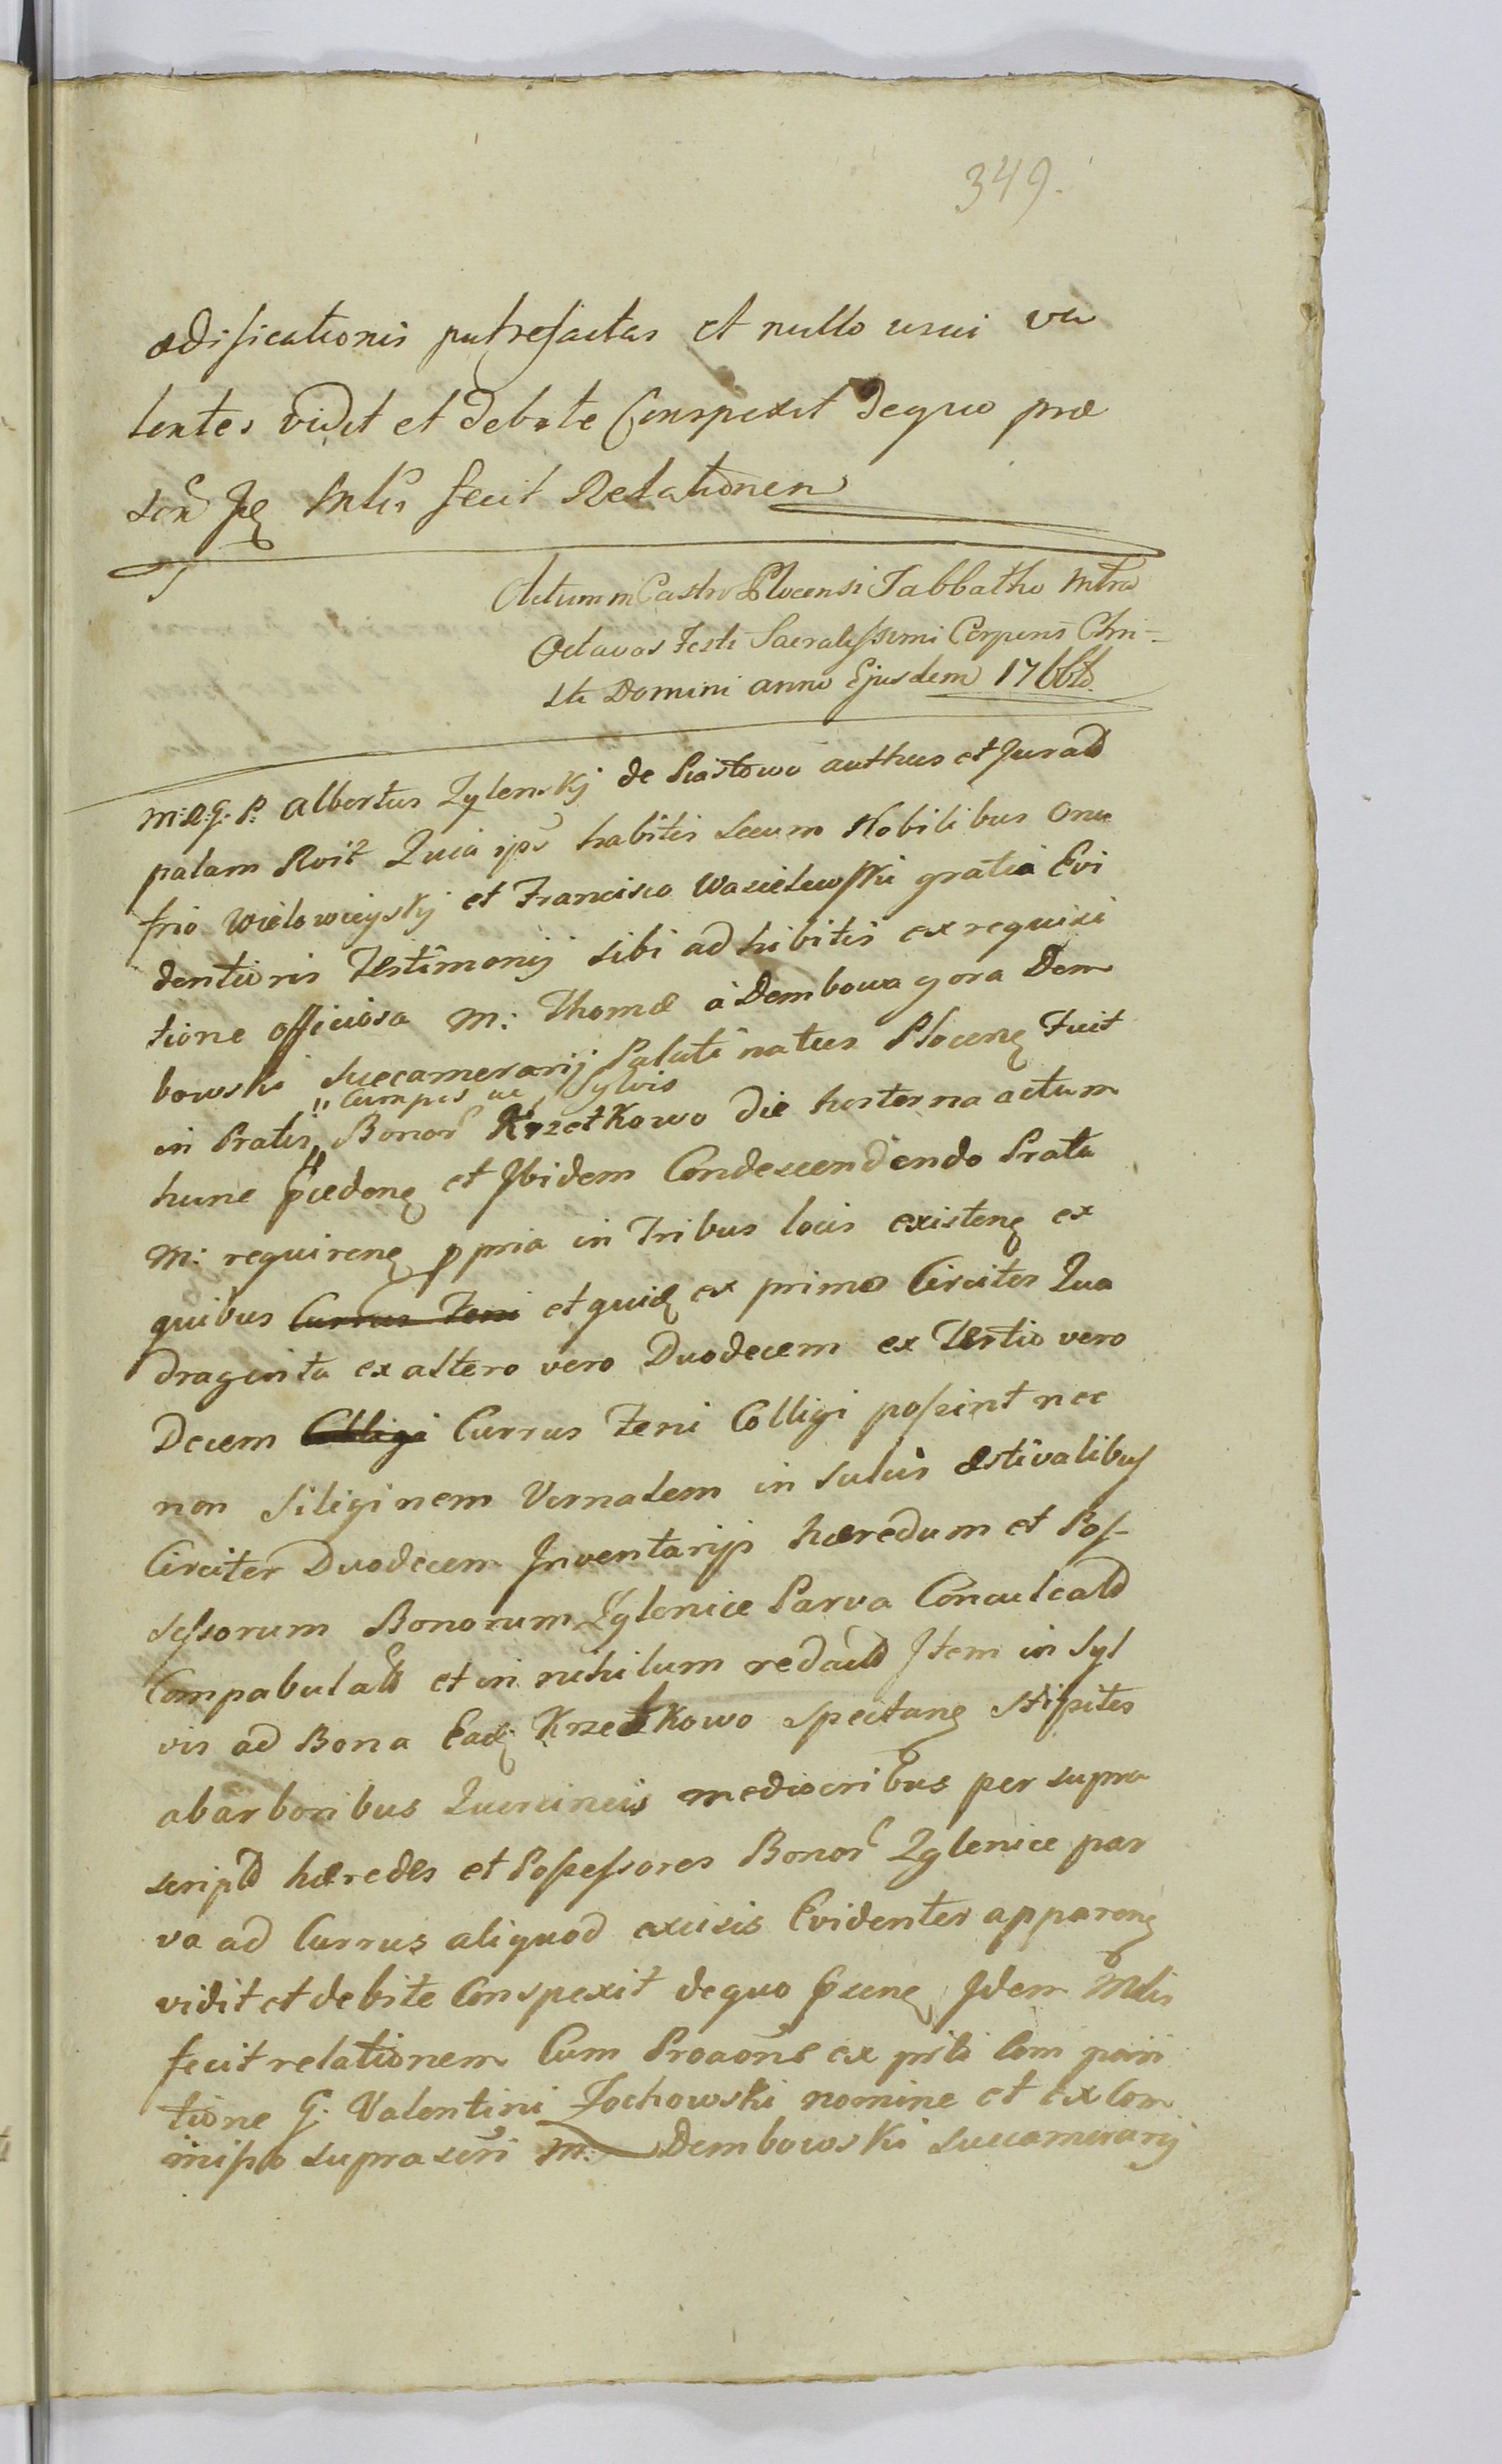 349.
ædificationis putrefactas et nullo usui va
lentes vidit et debite Conspexit dequo præ
fecit Relationem
Actum in Castro Plocensi Sabbatho Intra
Octavas Festi Sacratissimi Corporis Chri-
sti Domini anno Ejusdem 1766to
M:R:G:P: Albertus Zglenskj de Piastowo authus et Juratd
palam Rvit Quia ips habitis secum Nobilibus Onu
frio Wielowieyskj et Francisco Wasielewski gratia Evi
dentioris Testimonij sibi ad hibitis ex requisi
tione officiosa M: Thomæ à Dembowa gora Dem
bowski Succamerarij Palati natus Plocenς Fuit
Campis ac Sylvis
in Pratis Bonor Krzetkowo die hesterna actum
hunc et Ibidem Condescendendo Prata
M: requirenς ppria in Tribus locis existenς ex
quibus Currus Feni et quidς ex primo Circiter Qua
draginta ex altero vero Duodecem ex Tertio vero
Decem Colligi Currus Feni Colligi possint nec
non Siliginem Vernalem in sulcis æstivalibus
Circiter Duodecem Inventarijs hæredum et Pos-
sessorum Bonorum Zglenice Parva Conculcatd
Compabulatd et in nihilum redactd Item in Syl
vis ad Bona Eadς Krzetkowo spectanς stipites
ab arboribus Quercineis mediocribus per supra
scriptd hæredes et Possessores Bonor Zglenice par
va ad Currus aliquod excisis Evidenter apparenς
vidit et debite Conspexit dequo Idem Mlis
fecit relationem Cum ex com pari
tione G: Valentini Zochowski nomine et ex Com
misso suprascri M: Dembowski Succamerarij